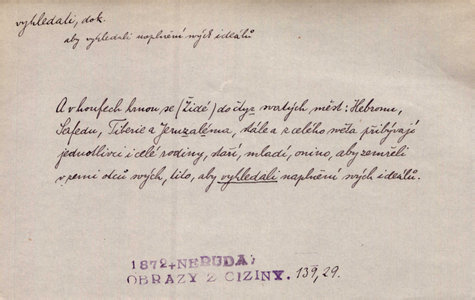 vyhledati, dok.
aby vyhledali naplnění svých ideálů
A v houfech hrnou se (Židé) do čtyr svatých měst: Hebronu,
Safedu, Tiberie a Jeruzaléma, stále a z celého světa přibývají
jednotlivci i celé rodiny, staří, mladí, onino, aby zemřeli
v zemi otců svých, tito, aby vyhledali naplnění svých ideálů.
1872, NERUDA,
OBRAZY Z CIZINY. 139, 29.